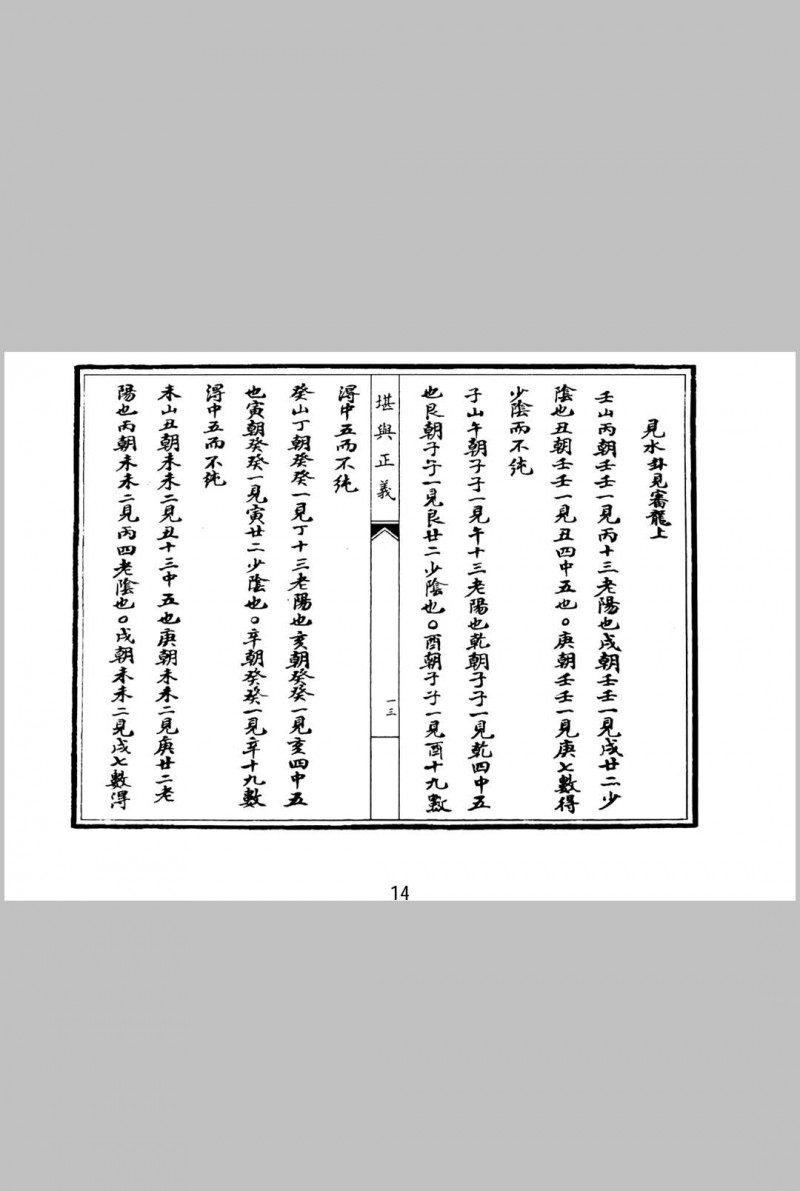 見水卦見審龍上
壬山丙朝壬壬一見丙十三老陽也戌朝壬壬一見戌廿二少
陰也丑朝壬壬一見丑四中五也。庚朝壬壬一見庚七數得
少陰而不純
子山午朝子子一見午十三老陽也乾朝子子一見乾四中五
也艮朝子子一見艮廿二少陰也。酉朝子子一見酉十九數
得中五而不純
癸山丁朝癸癸一見丁十三老陽也亥朝癸癸一見亥四中五
也寅朝癸癸一見寅廿二少陰也。辛朝癸癸一見辛十九數
得中五而不純
未山丑朝未未二見丑十三中五也庚朝未未二見庚廿二老
陽也丙朝未未二見丙四老陰也。戌朝未未二見戌七數得
堪輿正義
一三
14